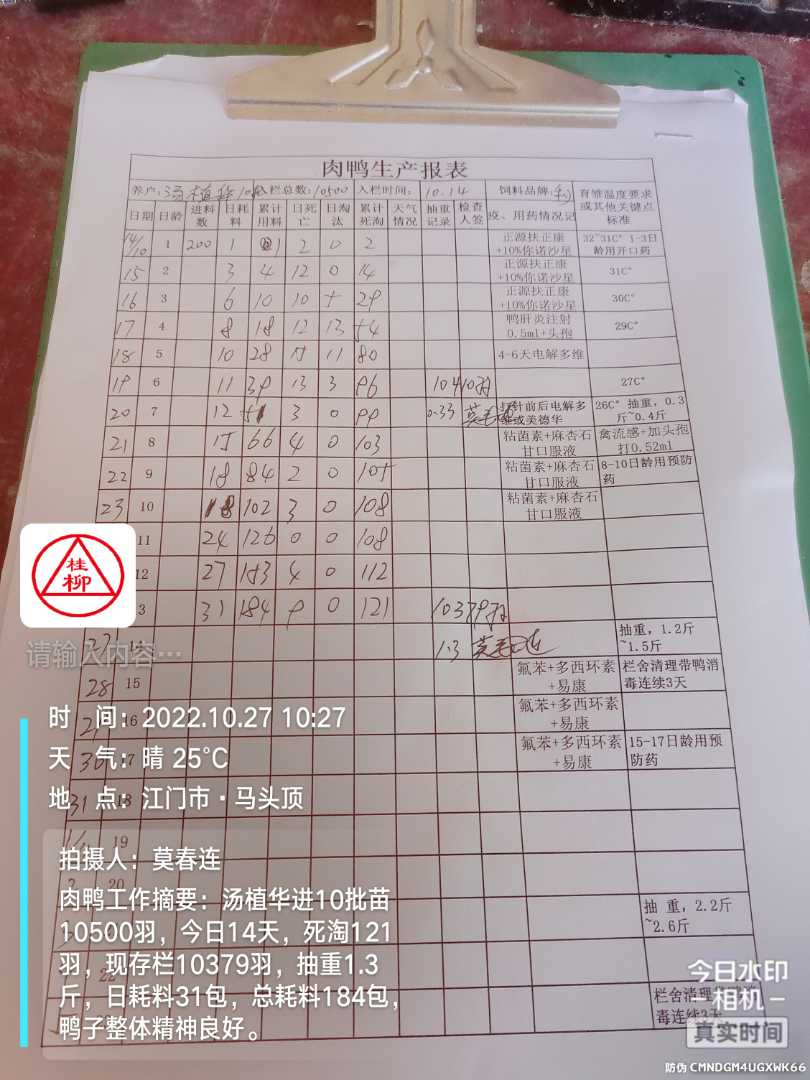 肉鸭生产报表
养户: 汤植华10批 入栏总数: 10500 入栏时间: 10.14 饲料品牌: 育雏温度要求或其他关键点标准
日期 日龄 进料数 日耗料 累计用料 日死亡 日淘汰 累计死淘 天气情况 抽重记录 检查人签 疫、用药情况记
14/10 1 200 1 1 2 0 2 正源扶正康+10%你诺沙星 32~31C° 1-3日龄用开口药
15 2 3 4 12 0 14 正源扶正康+10%你诺沙星 31C°
16 3 6 10 10 5 29 正源扶正康+10%你诺沙星 30C°
17 4 8 18 12 13 54 鸭肝炎注射0.5ml+头孢 29C°
18 5 10 28 15 11 80 4-6天电解多维
19 6 11 39 13 3 96 10410羽 27C°
20 7 12 51 3 0 99 0.33 莫春连 打针前后电解多维或美德华 26C° 抽重,0.3斤~0.4斤
21 8 15 66 4 0 103 粘菌素+麻杏石甘口服液 禽流感+加头孢打0.52ml
22 9 18 84 2 0 105 粘菌素+麻杏石甘口服液 8-10日龄用预防药
23 10 18 102 3 0 108 粘菌素+麻杏石甘口服液
11 24 126 0 0 108
12 27 153 4 0 112
3 31 184 9 0 121 10379羽
27 1.3 莫春连 抽重,1.2斤~1.5斤
28 15 氟苯+多西环素+易康 栏舍清理带鸭消毒连续3天
16 氟苯+多西环素+易康
30 17 氟苯+多西环素+易康 15-17日龄用预防药
31 18
19
20
抽 重,2.2斤~2.6斤
22
栏舍清理 毒连续3天
桂柳
请输入内容…
时 间: 2022.10.27 10:27
天 气: 晴 25℃
地 点: 江门市·马头顶
拍摄人: 莫春连
肉鸭工作摘要: 汤植华进10批苗
10500羽,今日14天,死淘121
羽,现存栏10379羽,抽重1.3
斤,日耗料31包,总耗料184包,
鸭子整体精神良好。
今日水印
相机
真实时间
防伪 CMNDGM4UGXWK66